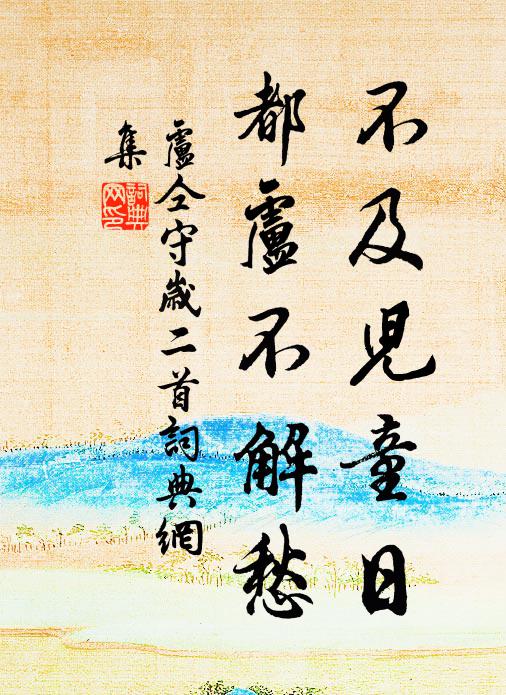 不及兒童日
都盧不解愁
盧仝守歲二首詞典網
集
詞典
网印